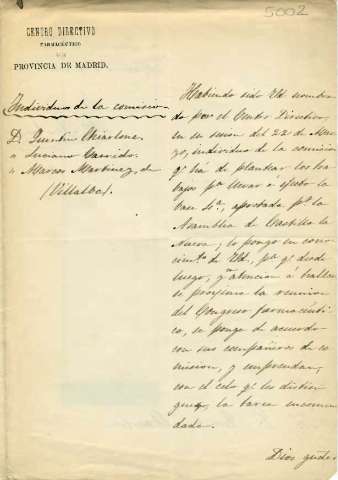 5002
CENTRO DIRECTIVO
FARMACÉUTICO
DE LA
PROVINCIA DE MADRID.
Individuos de la comision
D. Quintin Chiarlone
" Luciano Garrido
" Marcos Martinez, de
(Villalba)
Habiendo sido Ud. nombra-
do por el Centro Directivo,
en su sesion del 22 de Ma-
yo, individuo de la comision
q. ha de plantear los tra-
bajos pª llevar a efecto la
base 5ª, aprobada pr. la
Asamblea de Castilla la
Nueva; lo pongo en cono-
cimto. de Ud., pª q. desde
luego, y en atencion á hallar-
se proxima la reunion
del Congreso farmacéuti-
co, se ponga de acuerdo
con sus compañeros de co-
mision, y emprendan,
con el celo q. les distin-
gue, la tarea encomen-
dada.
Dios gude.